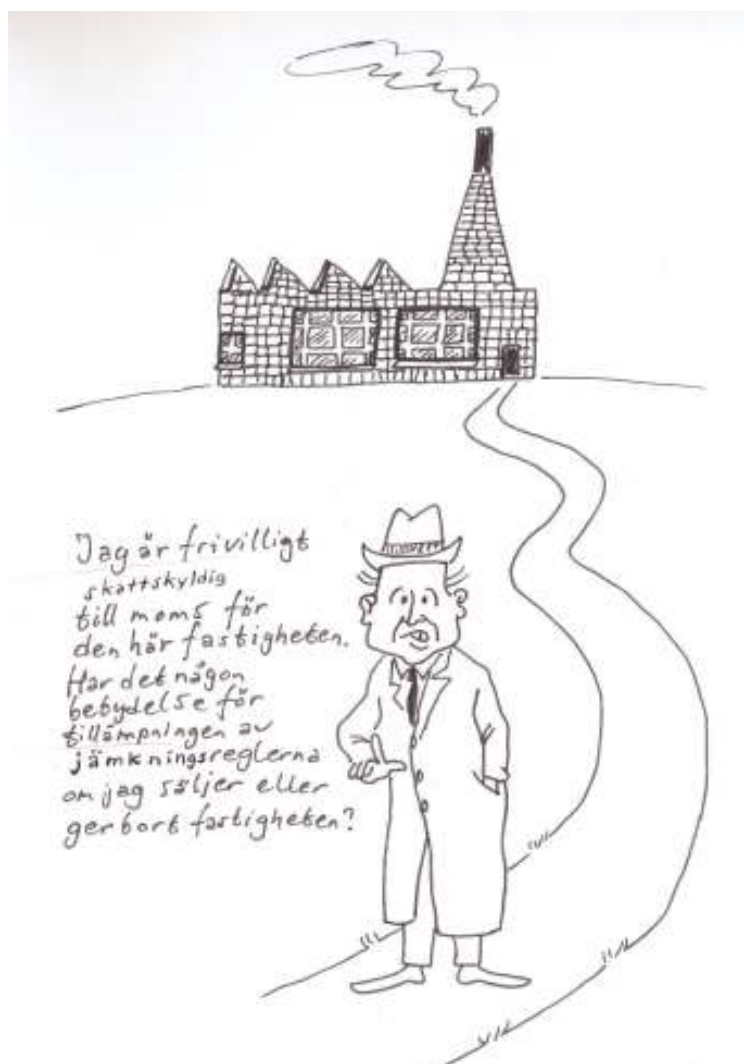 Jag är frivilligt
skattskyldig
till moms för
den här fastigheten.
Har det någon
betydelse för
tillämpningen av
jämkningsreglerna
om jag säljer eller
ger bort fastigheten?